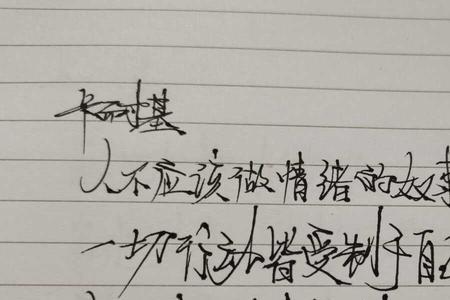 卡耐基
人不应该做情绪的奴隶
一切行动皆受制于自